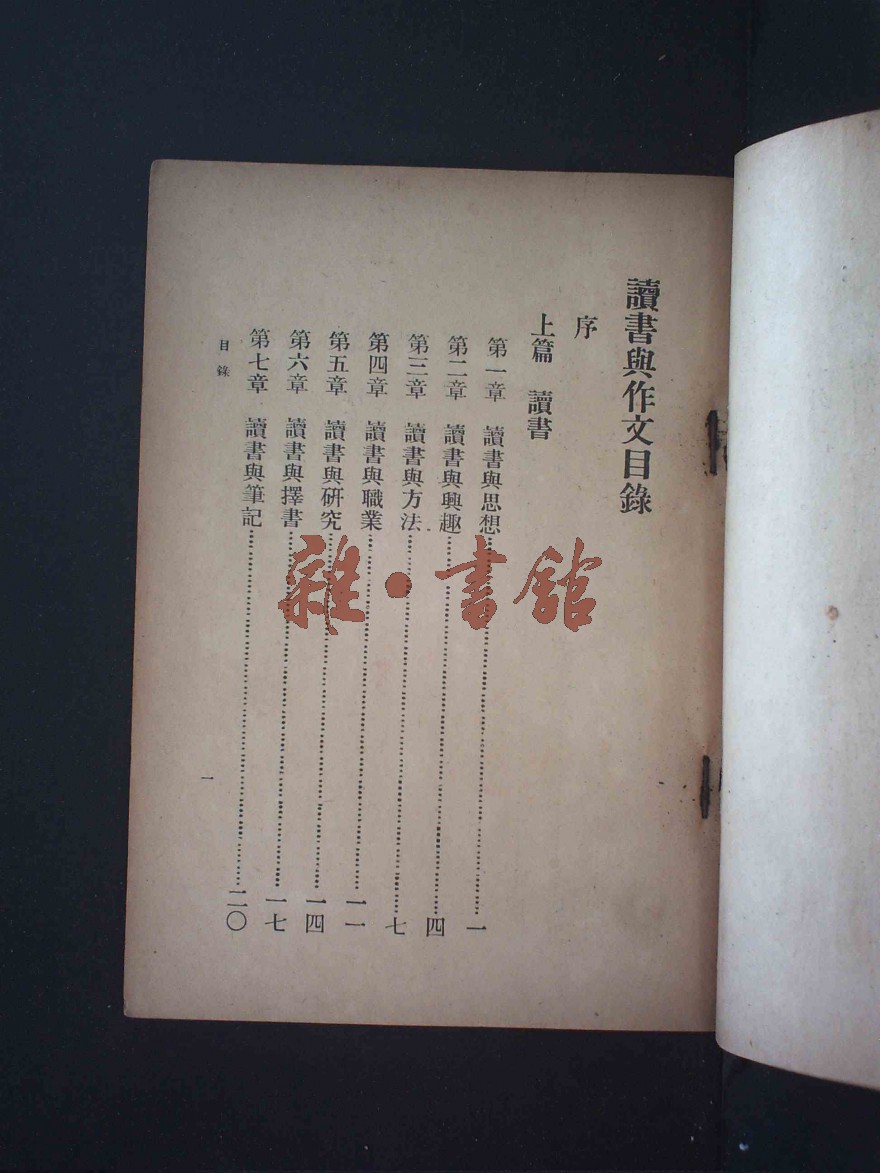 讀書與作文目錄
序
上篇 讀書
第一章 讀書與思想……一
第二章 讀書與興趣……四
第三章 讀書與方法……七
第四章 讀書與職業……一一
第五章 讀書與研究……一四
第六章 讀書與擇書……一七
第七章 讀書與筆記……二〇
目錄
一
雜·書館